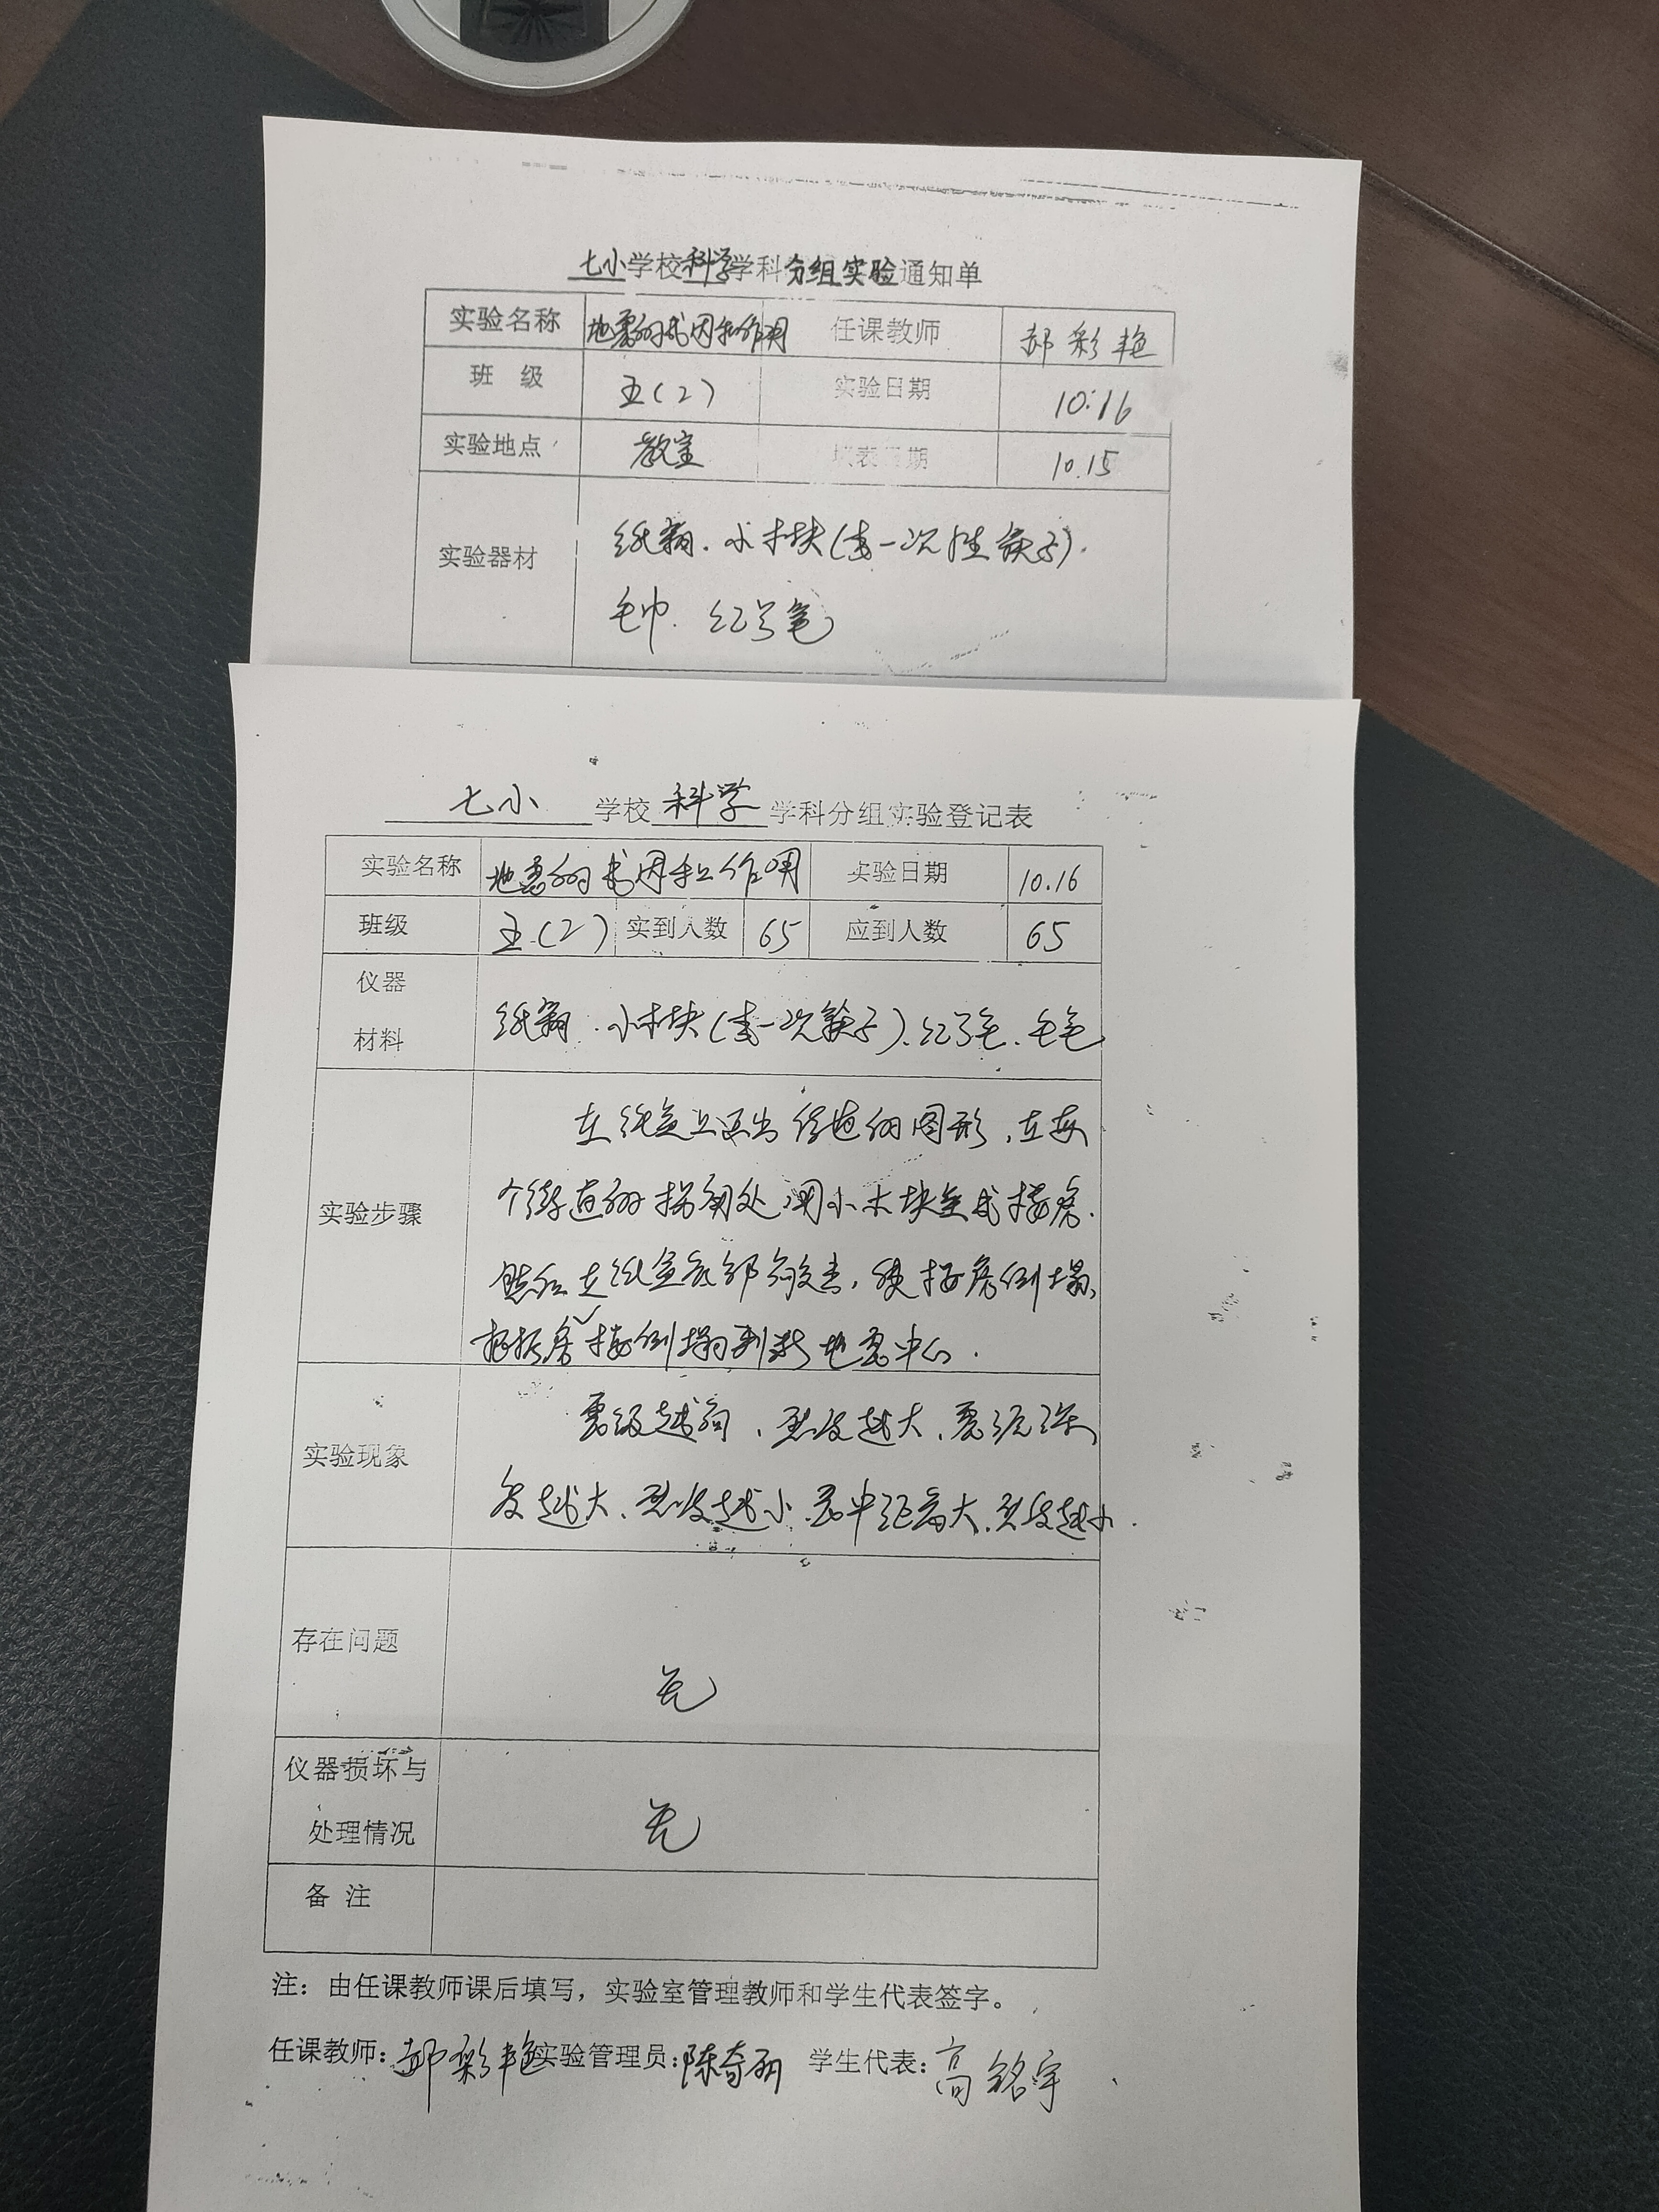 七小学校科学学科分组实验通知单
实验名称 地震的成因和作用 任课教师 郝彩艳
班 级 五(2) 实验日期 10.16
实验地点 教室 填表日期 10.15
实验器材 纸箱.小木块(或一次性筷子).
毛巾.
七小 学校 科学 学科分组实验登记表
实验名称 地震的成因和作用 实验日期 10.16
班级 五(2) 实到人数 65 应到人数 65
仪器
材料
纸箱.小木块(或一次筷子).
在纸盒上画出街道的图形,在每
实验步骤
个街道的拐角处,用小木块垒成楼房.
然后在纸盒底部敲击,使楼房倒塌,
根据房楼倒塌判断地震中心.
震级越高,烈度越大,震源深
实验现象
度越大,烈度越小.震中距离大,烈度越小.
存在问题
无
仪器损坏与
处理情况
无
备 注
注:由任课教师课后填写,实验室管理教师和学生代表签字。
任课教师:郝彩艳 实验管理员:陈奇 学生代表:高铭宇